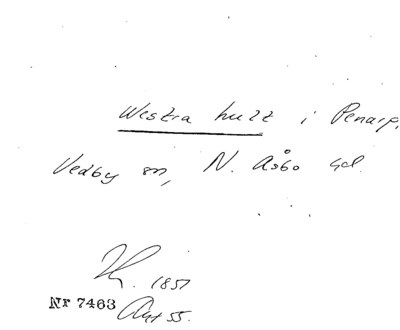 Westra hult i Penarp,
Vedby sn, N. Åsbo hd.
1851
Nr 7463 Avt 55.